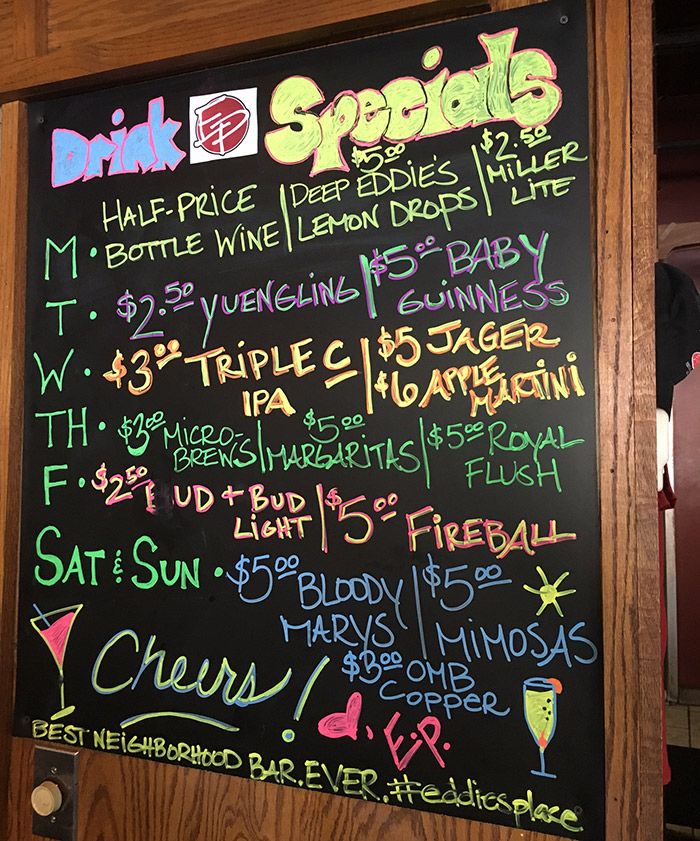 Drink EP Specials
M • HALF-PRICE BOTTLE WINE | $5.00 DEEP EDDIE'S LEMON DROPS | $2.50 MILLER LITE
T • $2.50 YUENGLING | $5.00 BABY GUINNESS
W • $3.00 TRIPLE C IPA | $5 JAGER $6 APPLE MARTINI
TH • $3.00 MICRO-BREWS | $5.00 MARGARITAS | $5.00 ROYAL FLUSH
F • $2.50 BUD + BUD LIGHT | $5.00 FIREBALL
SAT & SUN • $5.00 BLOODY MARYS | $5.00 MIMOSAS
$3.00 OMB COPPER
Cheers!
, E.P.
BEST NEIGHBORHOOD BAR. EVER. #eddiesplace